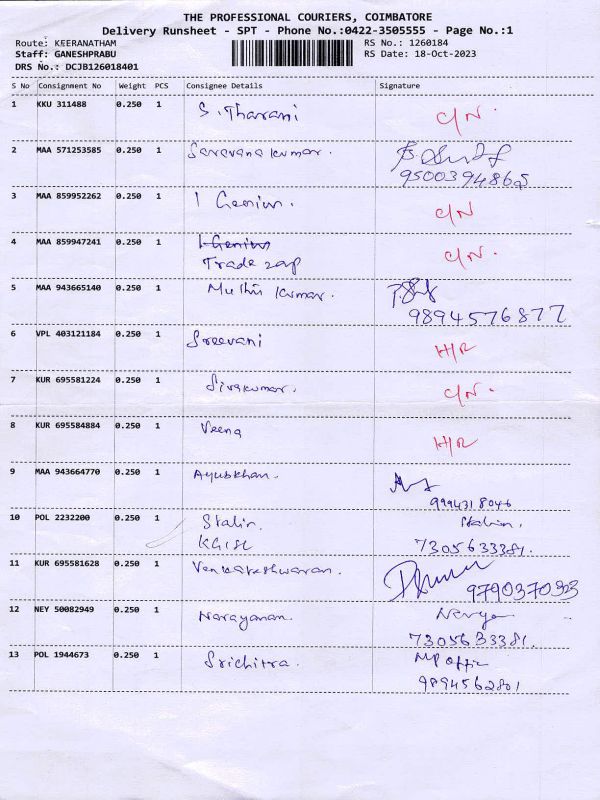 THE PROFESSIONAL COURIERS, COIMBATORE
Delivery Runsheet - SPT - Phone No.:0422-3505555 - Page No.:1
Route: KEERANATHAM RS No.: 1260184
Staff: GANESHPRABU RS Date: 18-Oct-2023
DRS No.: DCJB126018401
S No Consignment No Weight PCS Consignee Details Signature
1 KKU 311488 0.250 1 S. Tharani C/N.
2 MAA 571253585 0.250 1 Saravana kumar.
9500394865
3 MAA 859952262 0.250 1 I Genius. C/N
4 MAA 859947241 0.250 1 I Genius C/N.
Trade zap
5 MAA 943665140 0.250 1 Muthu Kumar.
9894576877
6 VPL 403121184 0.250 1 Sreevani H/R
7 KUR 695581224 0.250 1 Sivakumar. C/N.
8 KUR 695584884 0.250 1 Veena H/R
9 MAA 943664770 0.250 1 Ayubkhan.
9994318046
10 POL 2232200 0.250 1 Stalin. Stalin.
KGISL 7305633381.
11 KUR 695581628 0.250 1 Venkateshwaran.
9790370323
12 NEY 50082949 0.250 1 Narayanan.
7305633381.
13 POL 1944673 0.250 1 Srichitra. MP office
9894562801